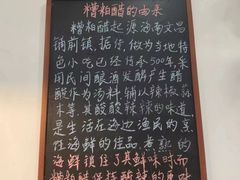 糟粕醋的由来
糟粕醋起源海南文昌
铺前镇，据传，做为当地特
色小吃已经传承500年，采
用民间酿酒发酵产生醋
酸作为汤料，辅以辣椒蒜
末等，其酸酸辣辣的味道
是生活在海边渔民的烹
任海鲜的佳品，煮熟的
海鲜镇住了其鲜味时而
糟粕醋保持酸辣的原味